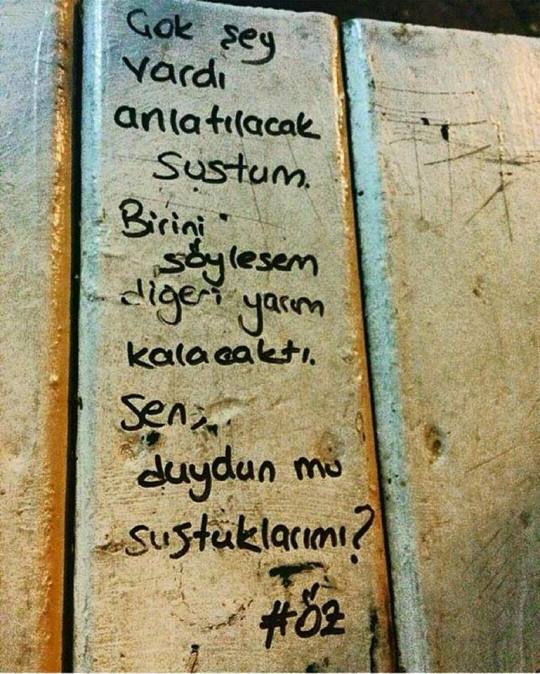 Çok şey
vardı
anlatılacak
sustum.
Birini
söylesem
diğeri yarım
kalacaktı.
Sen,
duydun mu
sustuklarımı?
#ÖZ